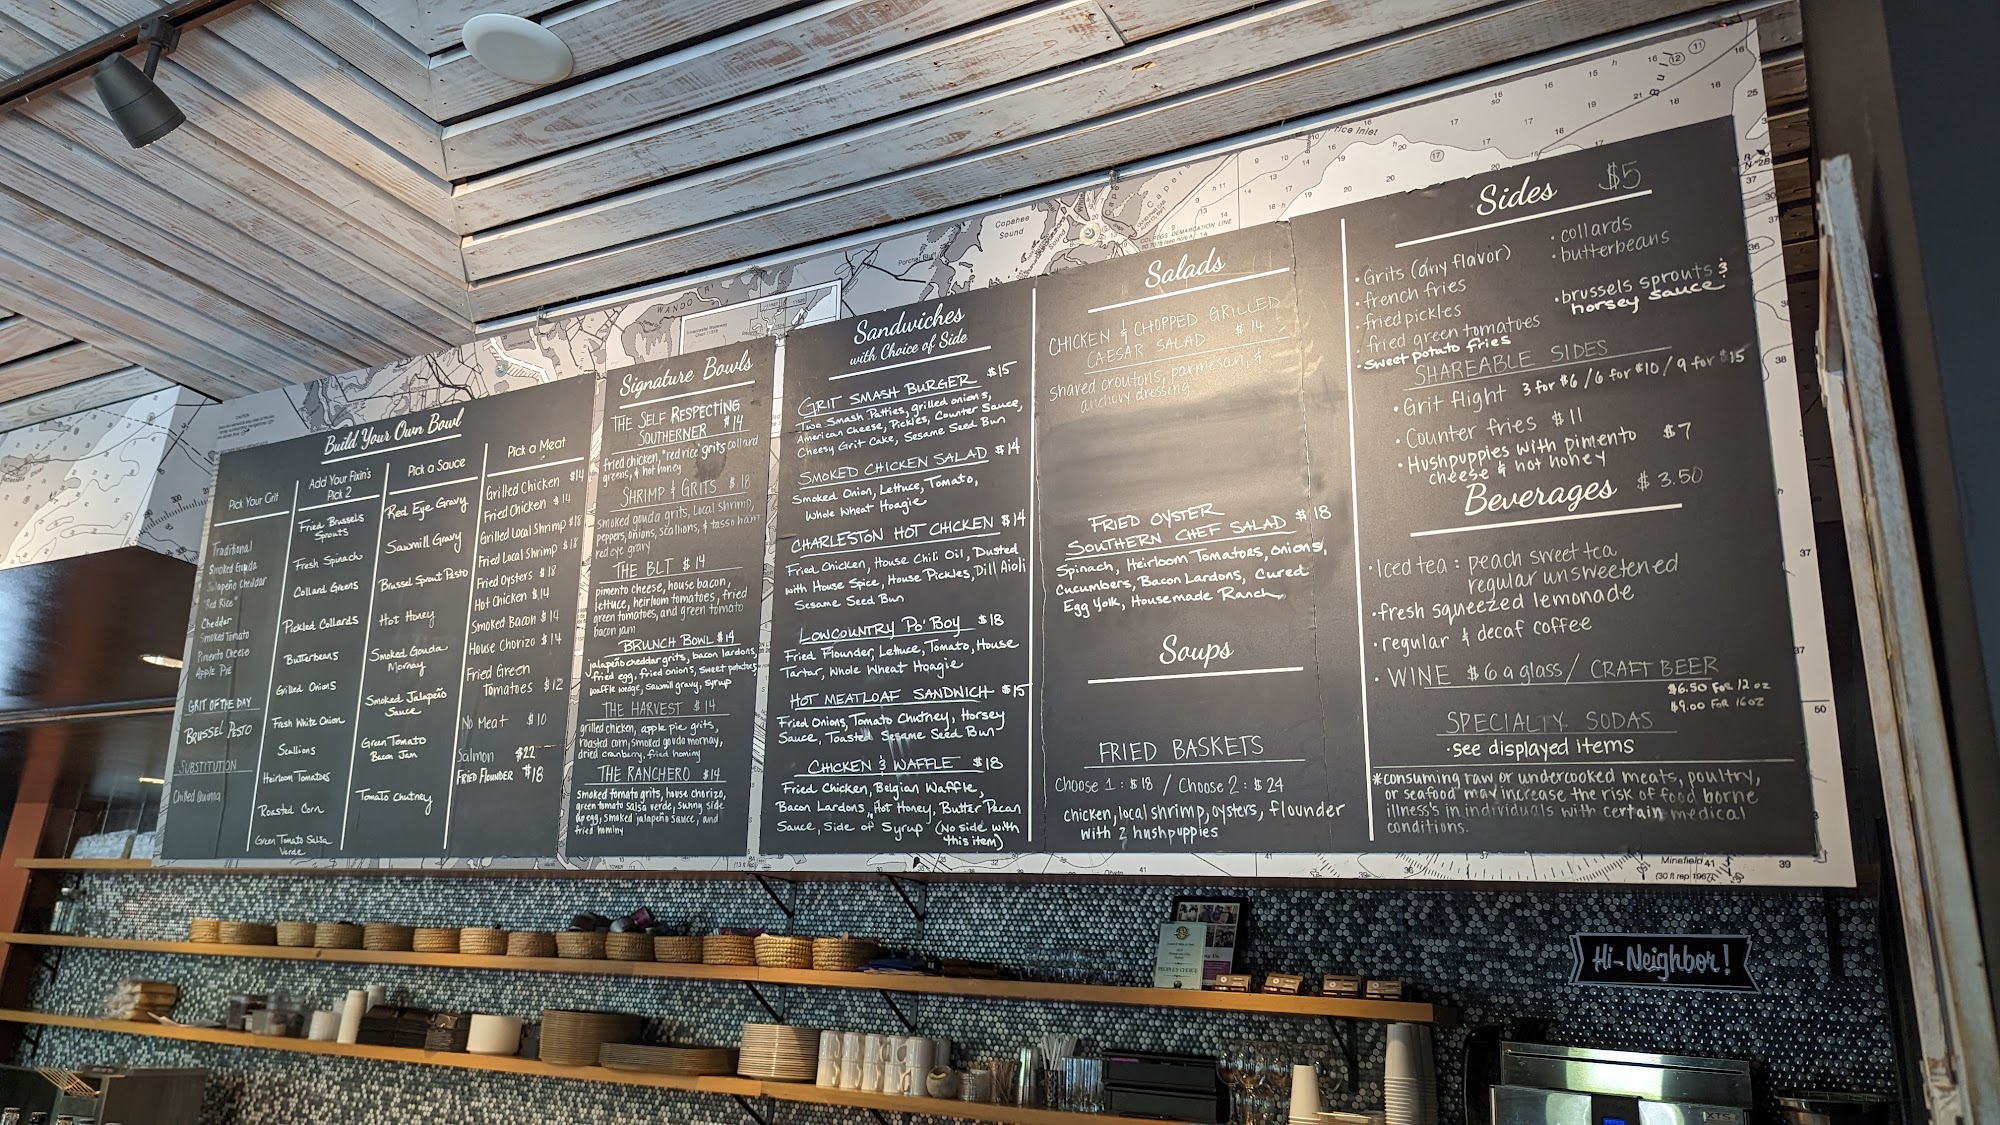 Build Your Own Bowl
Pick Your Grit
Traditional
Smoked Gouda
Jalapeño Cheddar
"Red Rice"
Cheddar
Smoked Tomato
Pimento Cheese
Apple Pie
GRIT OF THE DAY
BRUSSEL PESTO
SUBSTITUTION
Chilled Quinoa
Add Your Fixin's
Pick 2
Fried Brussels
Sprouts
Fresh Spinach
Collard Greens
Pickled Collards
Butterbeans
Grilled Onions
Fresh White Onion
Scallions
Heirloom Tomatoes
Roasted Corn
Green Tomato Salsa
Verde
Pick a Sauce
Red Eye Gravy
Sawmill Gravy
Brussel Sprout Pesto
Hot Honey
Smoked Gouda
Mornay
Smoked Jalapeño
Sauce
Green Tomato
Bacon Jam
Tomato Chutney
Pick a Meat
Grilled Chicken $14
Fried Chicken $14
Grilled Local Shrimp $18
Fried Local Shrimp $18
Fried Oysters $18
Hot Chicken $14
Smoked Bacon $14
House Chorizo $14
Fried Green
Tomatoes $12
No Meat $10
Salmon $22
FRIED FLOUNDER $18
Signature Bowls
THE SELF RESPECTING
SOUTHERNER $14
fried chicken, "red rice" grits collard
greens, & hot honey
SHRIMP & GRITS $18
smoked gouda grits, local shrimp,
peppers, onions, scallions, & tasso ham
red eye gravy
THE BLT $14
pimento cheese, house bacon,
lettuce, heirloom tomatoes, fried
green tomatoes, and green tomato
bacon jam
BRUNCH BOWL $14
jalapeño cheddar grits, bacon lardons,
fried egg, fried onions, sweet potatoes,
waffle wedge, sawmill gravy, syrup
THE HARVEST $14
grilled chicken, apple pie grits,
roasted corn, smoked gouda mornay,
dried cranberry, fried hominy
THE RANCHERO $14
smoked tomato grits, house chorizo,
green tomato salsa verde, sunny side
up egg, smoked jalapeño sauce, and
fried hominy
Sandwiches
with Choice of Side
GRIT SMASH BURGER $15
Two Smash Patties, grilled onions,
American Cheese, Pickles, Counter Sauce,
Cheesy Grit Cake, Sesame Seed Bun
SMOKED CHICKEN SALAD $14
Smoked Onion, Lettuce, Tomato,
Whole Wheat Hoagie
CHARLESTON HOT CHICKEN $14
Fried Chicken, House Chili Oil, Dusted
with House Spice, House Pickles, Dill Aioli
Sesame Seed Bun
LOWCOUNTRY PO' BOY $18
Fried Flounder, Lettuce, Tomato, House
Tartar, Whole Wheat Hoagie
HOT MEATLOAF SANDWICH $15
Fried Onions, Tomato Chutney, Horsey
Sauce, Toasted Sesame Seed Bun
CHICKEN & WAFFLE $18
Fried Chicken, Belgian Waffle,
Bacon Lardons, Hot Honey, Butter Pecan
Sauce, Side of Syrup (No side with
this item)
Salads
CHICKEN & CHOPPED GRILLED
CAESAR SALAD $14
shaved croutons, parmesan, &
anchovy dressing
FRIED OYSTER
SOUTHERN CHEF SALAD $18
Spinach, Heirloom Tomatoes, Onions,
Cucumbers, Bacon Lardons, Cured
Egg Yolk, Housemade Ranch
Soups
FRIED BASKETS
Choose 1: $18 / Choose 2: $24
chicken, local shrimp, oysters, flounder
with 2 hushpuppies
Sides $5
• Grits (any flavor)
• french fries
• fried pickles
• fried green tomatoes
• sweet potato fries
• collards
• butterbeans
• brussels sprouts &
horsey sauce
SHAREABLE SIDES
• Grit flight 3 for $6 / 6 for $10 / 9 for $15
• Counter fries $11
• Hushpuppies with pimento $7
cheese & hot honey
Beverages $3.50
• Iced tea: peach sweet tea
regular unsweetened
• fresh squeezed lemonade
• regular & decaf coffee
• WINE $6 a glass / CRAFT BEER
$6.50 FOR 12 oz
$9.00 FOR 16 oz
SPECIALTY SODAS
• see displayed items
*consuming raw or undercooked meats, poultry,
or seafood may increase the risk of food borne
illness's in individuals with certain medical
conditions.
Hi-Neighbor!
WANDO
Copahee
Sound
COLREGS DEMARCATION LINE
Minefield
PEOPLE'S CHOICE
XTS